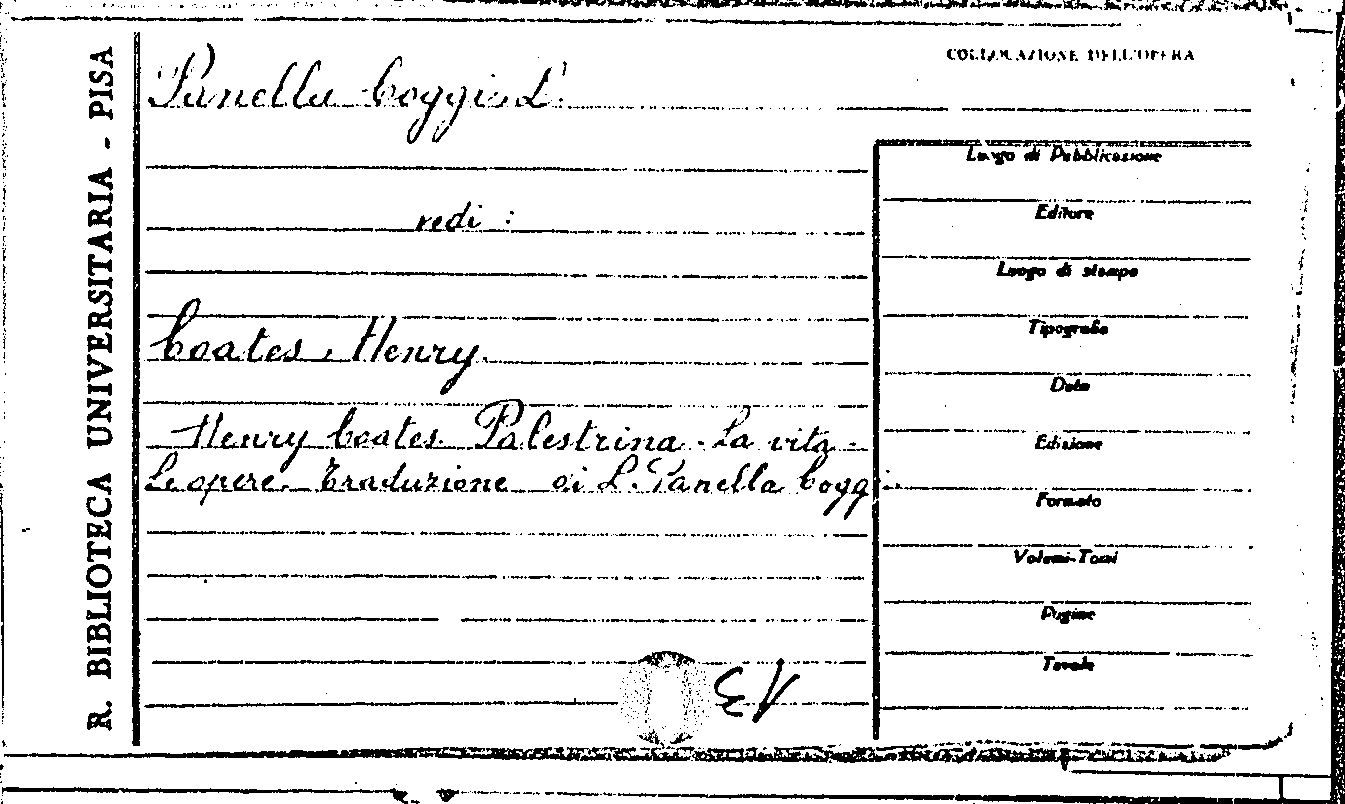 R. BIBLIOTECA UNIVERSITARIA - PISA
COLLOCAZIONE DELL'OPERA
Panella Coggi L.
vedi :
Coates, Henry.
Henry Coates. Palestrina. La vita -
Le opere. Traduzione di L. Panella Coggi.
Luogo di Pubblicazione
Editore
Luogo di stampa
Tipografia
Data
Edizione
Formato
Volumi-Tomi
Pagine
Tavole